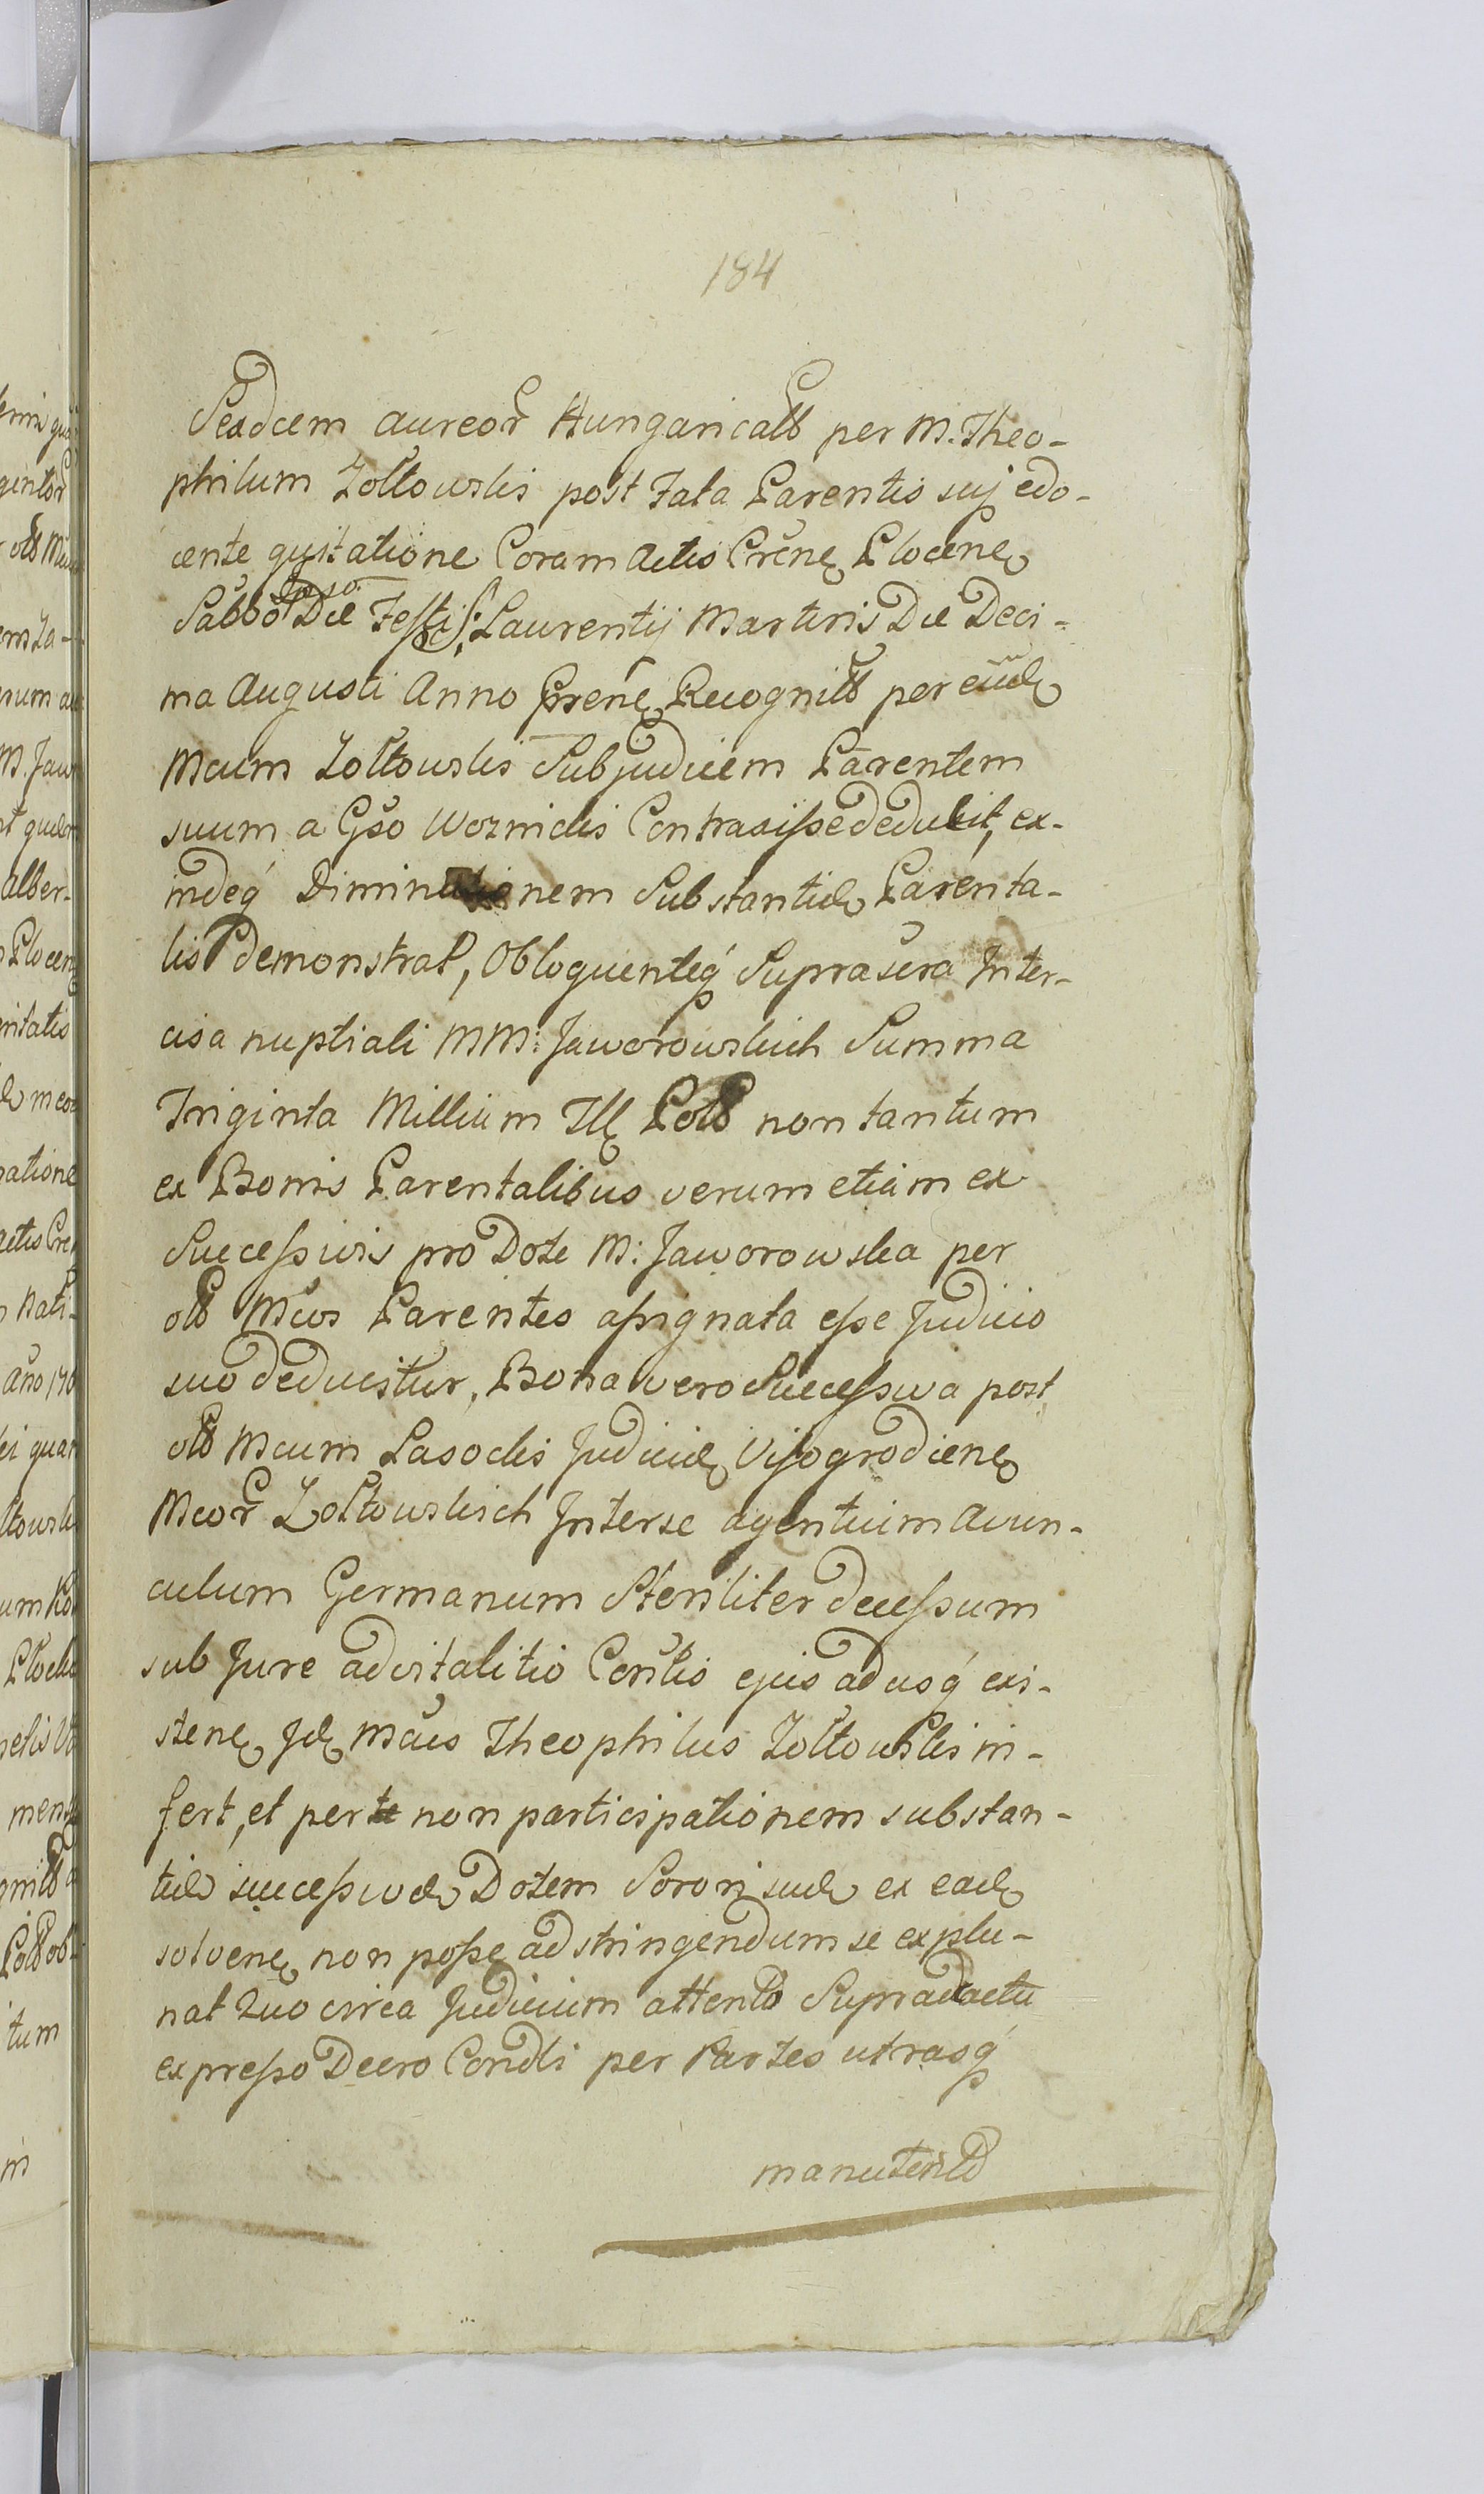 184
Sexdcem aureor Hungaricalb per M. Theo-
philum Zołtowski post Fata Parentis suj edo-
cente qujtatione Coram Actis Crene Plocene
Sabbo Ipso Die Festi S: Laurentij Martiris Die Deci-
ma Augusti Anno Prene Recognito per eude
Mcum Zołtowski Subjudicem Parentem
suum a Gso Woznicki Contraxisse dedukit, ex-
indeq Diminutionem Substantiæ Parenta-
lis demonstrat, Obloquenteq Suprascra Inter-
cisa nuptiali MM: Jaworowskich Summa
Triginta Millium Fll Polo non tantum
ex Bonis Parentalibus verum etiam ex
Successivis pro Dote M: Jaworowska per
olb Mcos Parentes assignata esse Judicio
suo deducitur, Bona vero Successiva post
olb Mcum Lasocki Judicie Visogrodiene
Mcor Zołtowskich Interse agentium Avun-
culum Germanum Steriliter decessum
sub Jure advitalitio Contis ejus ad usq exi-
stene Ide Mcus Theophilus Zołtowski in-
fert, et per te non participationem substan-
tiæ successivæ Dotem Sorori suæ ex eade
solvene non posse ad stringendum se explu-
nat Quo circa Judicium attento Supradactu
expresso Decro Condli per Partes utrasq
manutento
gintor
olb
M. Jaw
Alber-
Plocen
entatis
Actis Cre
Nati-
Año 170
tum